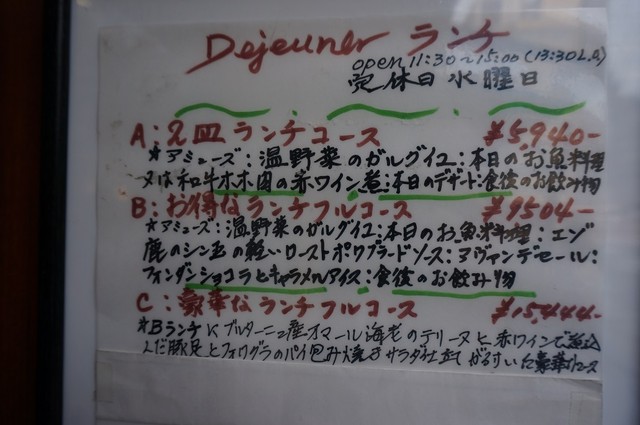 Dejeuner ランチ
open 11:30~15:00 (13:30 L.O)
定休日 水曜日
A: 2皿ランチコース ¥5,940-
*アミューズ:温野菜のガルグイユ:本日のお魚料理
又は和牛ホホ肉の赤ワイン煮:本日のデザート:食後のお飲み物
B: お得なランチフルコース ¥9504-
*アミューズ:温野菜のガルグイユ:本日のお魚料理:エゾ
鹿のシン玉の軽いローストポワブラードソース:アヴァンデセール:
フォンダンショコラとキャラメルアイス:食後のお飲み物
C: 豪華なランチフルコース ¥15,444-
*Bランチにブルターニュ産オマール海老のテリーヌと赤ワインで煮込
んだ豚足とフォワグラのパイ包み焼きサラダ仕立て が